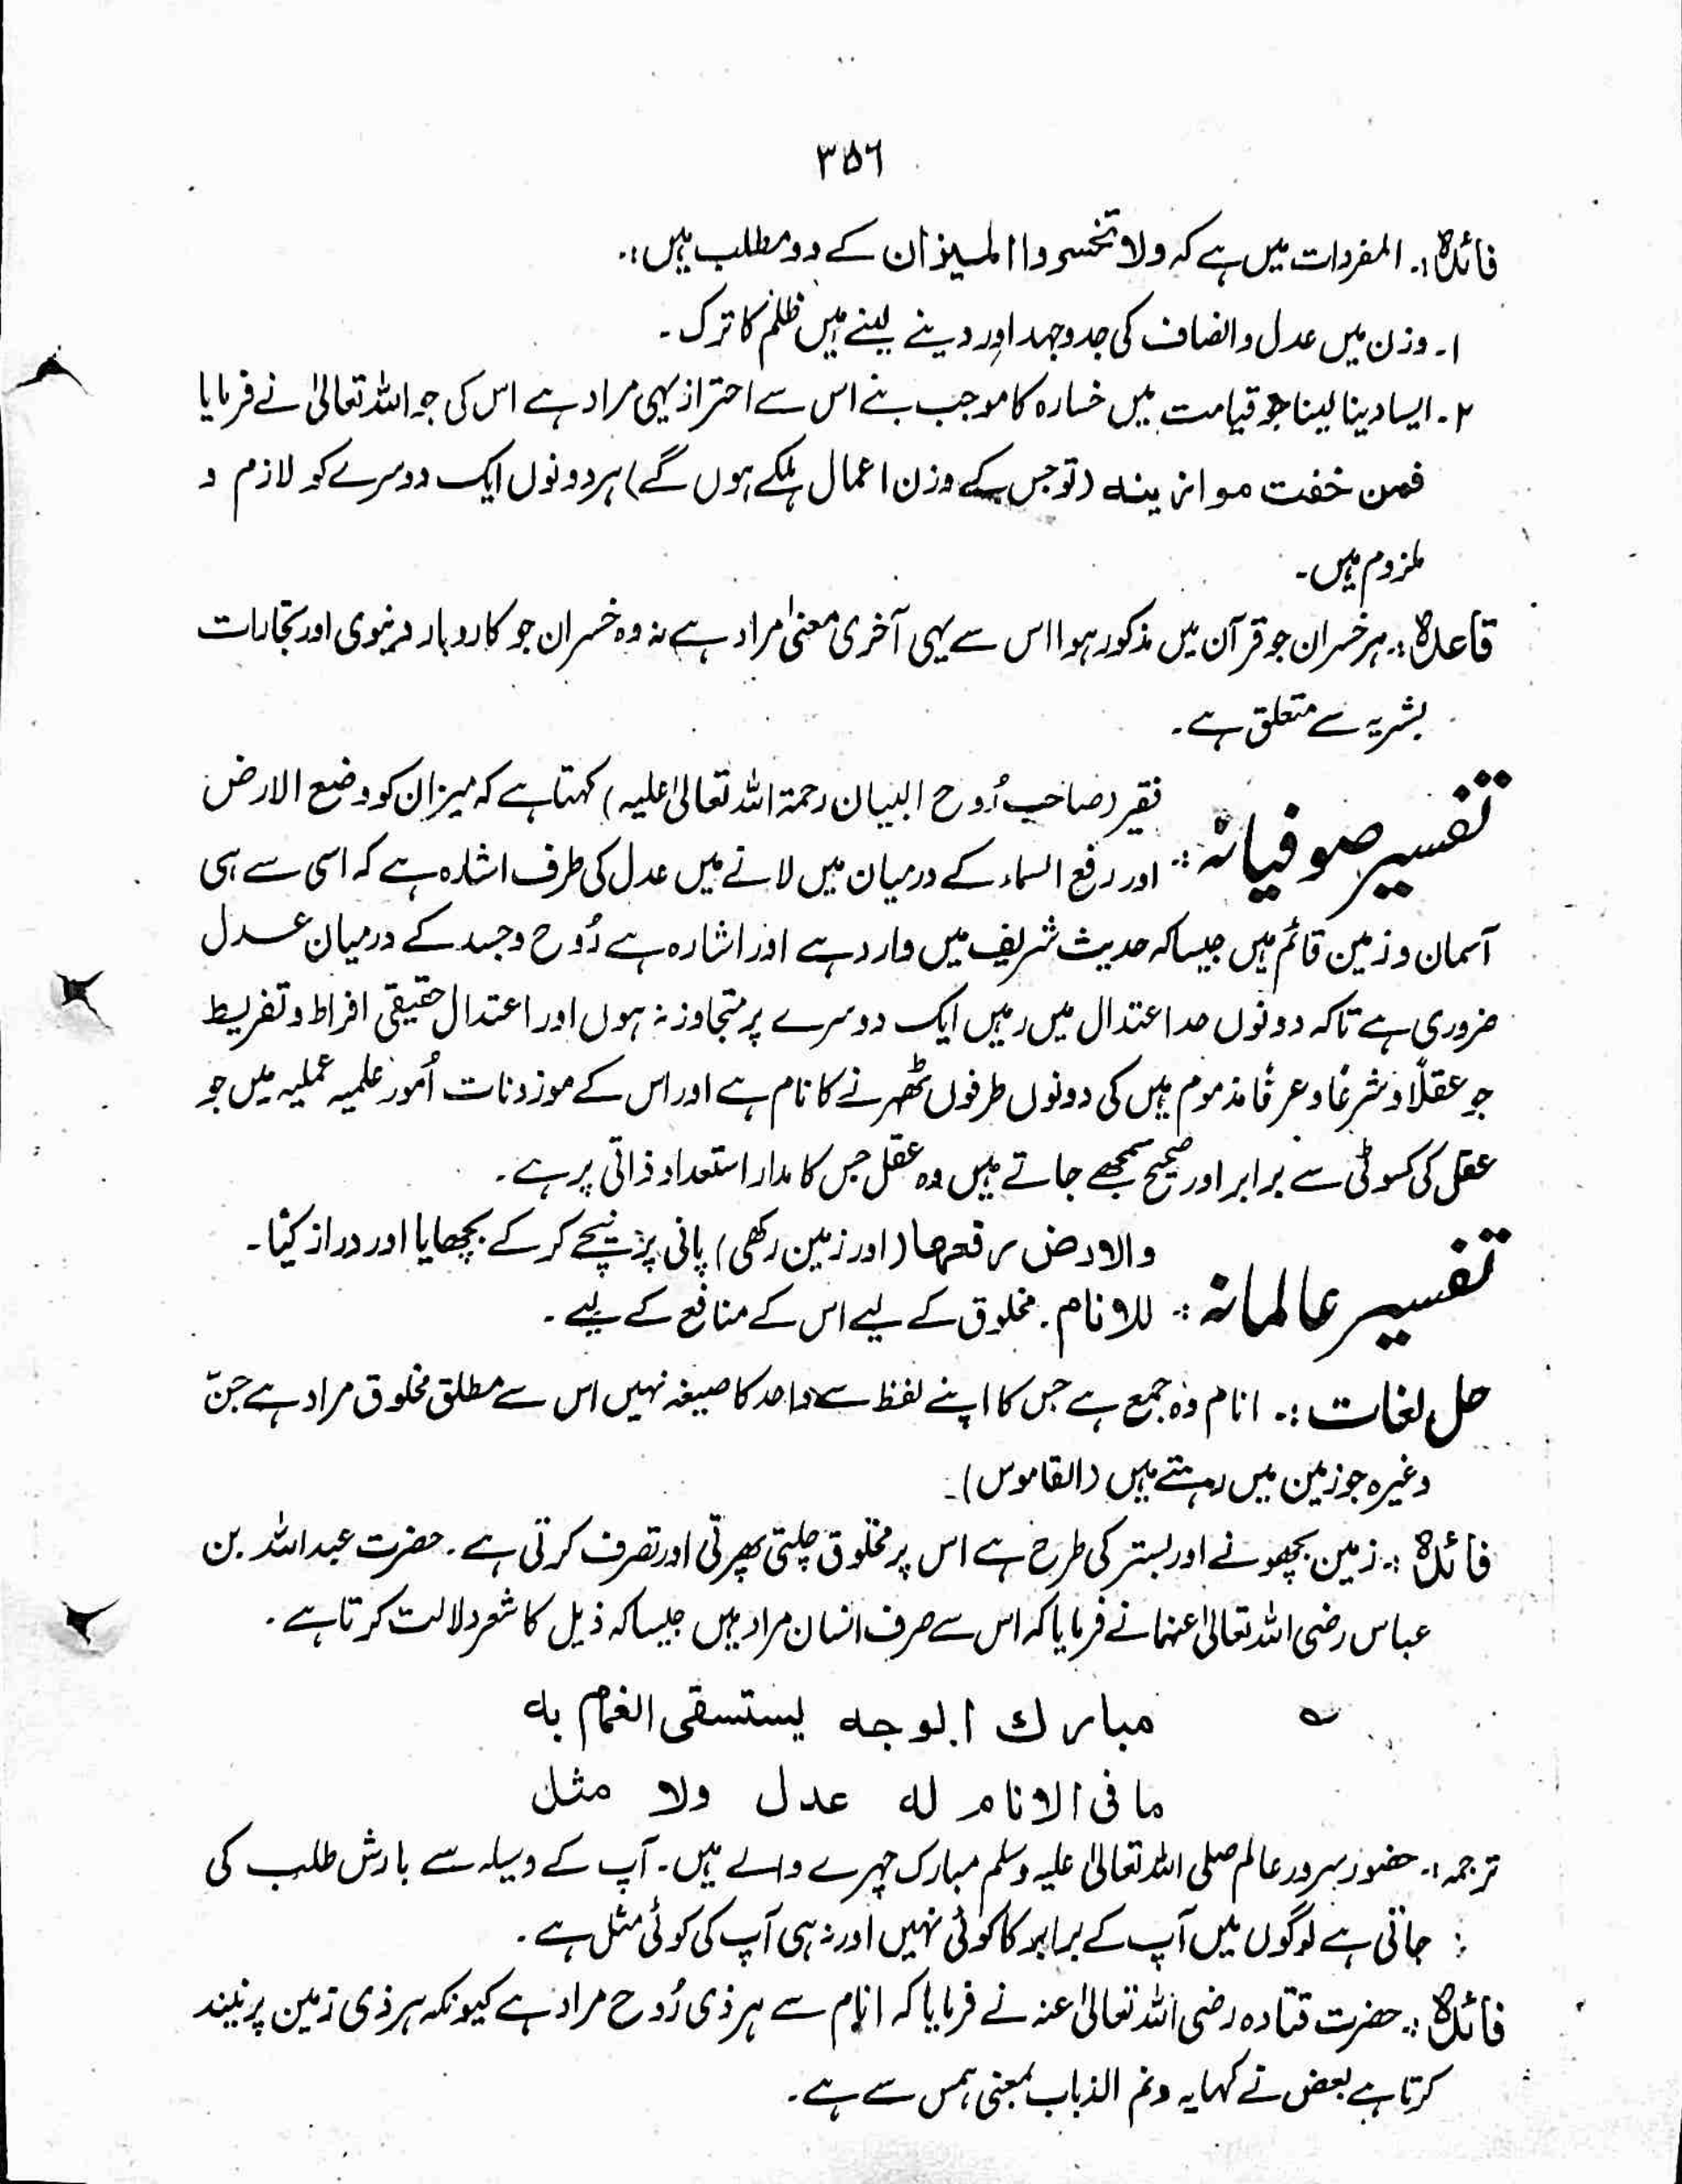 ۳۵۶
فائدہ:۔ المفردات میں ہے کہ ولا تخسروا المیزان کے دو مطلب ہیں:۔
۱۔ وزن میں عدل وانصاف کی جدوجہد اور دینے لینے میں ظلم کا ترک۔
۲۔ ایسا دینا لینا جو قیامت میں خسارہ کا موجب بنے اس سے احتراز یہی مراد ہے اس کی جو اللہ تعالیٰ نے فرمایا
فمن خفت موازینہ (توجس کے وزن اعمال ہلکے ہوں گے) ہر دونوں ایک دوسرے کو لازم و
ملزوم ہیں۔
قاعدہ:۔ ہر خسران جو قرآن میں مذکور ہوا اس سے یہی آخری معنیٰ مراد ہے نہ وہ خسران جو کاروبار دنیوی اور تجارات
بشریہ سے متعلق ہے۔
تفسیر صوفیانہ:۔ فقیر (صاحب رُوح البیان رحمۃ اللہ تعالیٰ علیہ) کہتا ہے کہ میزان کو وضع الارض
اور رفع السماء کے درمیان میں لانے میں عدل کی طرف اشارہ ہے کہ اسی سے ہی
آسمان و زمین قائم ہیں جیسا کہ حدیث شریف میں وارد ہے اور اشارہ ہے رُوح وجسد کے درمیان عدل
ضروری ہے تاکہ دونوں حد اعتدال میں رہیں ایک دوسرے پر متجاوز نہ ہوں اور اعتدال حقیقی افراط و تفریط
جو عقلاً و شرعاً و عرفاً مذموم ہیں کی دونوں طرفوں ٹھہرنے کا نام ہے اور اس کے موزونات اُمور علمیہ عملیہ میں جو
عقل کی کسوٹی سے برابر اور صحیح سمجھے جاتے ہیں وہ عقل جس کا مدار استعداد ذاتی پر ہے۔
تفسیر عالمانہ:۔ والارض رقعہا (اور زمین رکھی) پانی پر نیچے کرکے بچھایا اور دراز کیا۔
للانام۔ مخلوق کے لیے اس کے منافع کے لیے۔
حل لغات:۔ انام وہ جمع ہے جس کا اپنے لفظ سے واحد کا صیغہ نہیں اس سے مطلق مخلوق مراد ہے جنّ
وغیرہ جو زمین میں رہتے ہیں (القاموس)۔
فائدہ:۔ زمین بچھونے اور بستر کی طرح ہے اس پر مخلوق چلتی پھرتی اور تصرف کرتی ہے۔ حضرت عبداللہ بن
عباس رضی اللہ تعالیٰ عنہما نے فرمایا کہ اس سے صرف انسان مراد ہیں جیسا کہ ذیل کا شعر دلالت کرتا ہے۔
؎ مبارك الوجه يستسقى الغمام به
ما فى الانام له عدل ولا مثل
ترجمہ:۔ حضور سرور عالم صلی اللہ تعالیٰ علیہ وسلم مبارک چہرے والے ہیں۔ آپ کے وسیلہ سے بارش طلب کی
جاتی ہے لوگوں میں آپ کے برابر کا کوئی نہیں اور نہ ہی آپ کی کوئی مثل ہے۔
فائدہ:۔ حضرت قتادہ رضی اللہ تعالیٰ عنہ نے فرمایا کہ انام سے ہر ذی رُوح مراد ہے کیونکہ ہر ذی زمین پر نیند
کرتا ہے بعض نے کہا یہ ونم الذباب بمعنی ہمس سے ہے۔